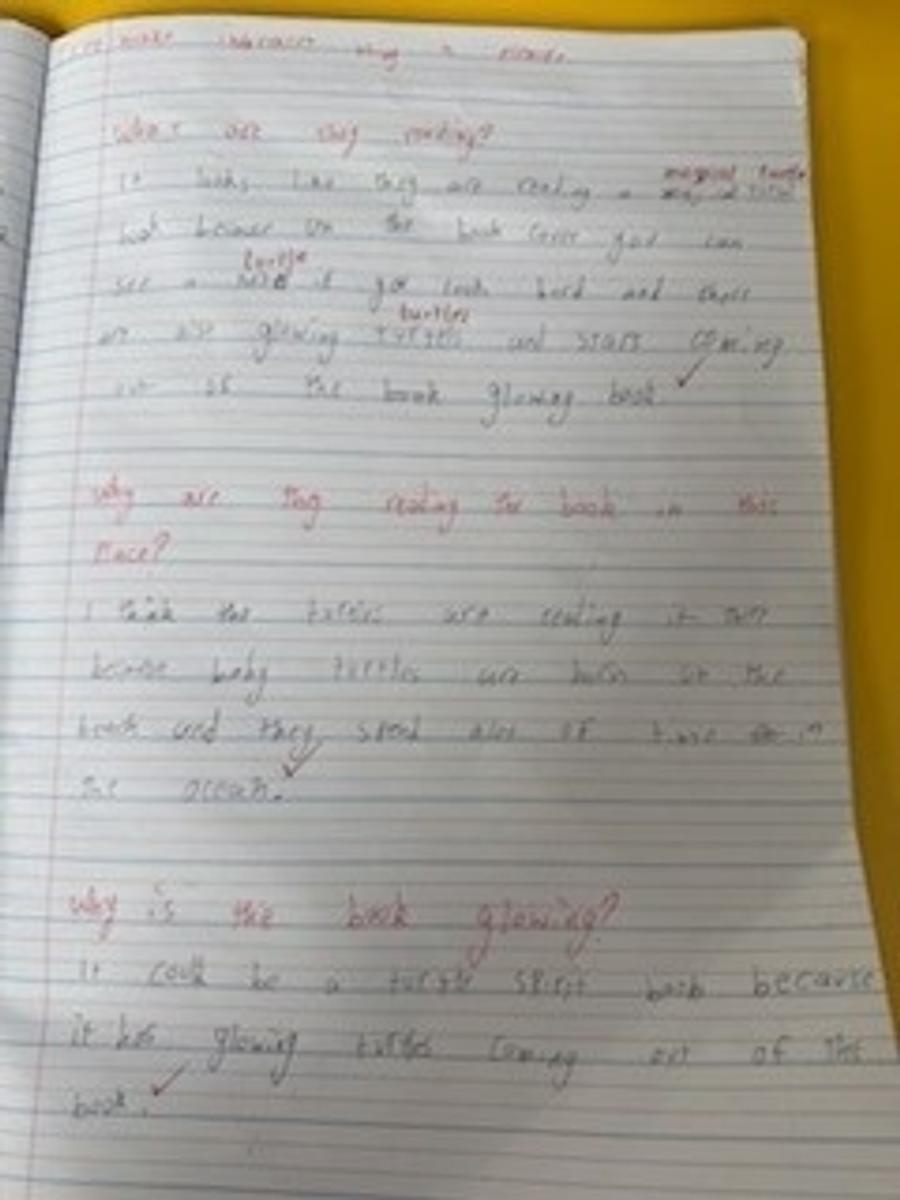 What are they reading?
magical turtle
It looks like they are reading a
book because on the book cover you can
turtle
see a if you look hard and there
turtles
are also glowing turtles and stars coming
out of the book glowing book
why are they reading the book in this
Place?
I think the turtles are reading it
because baby turtles are born at the
beach and they spend alot of time in
the ocean.
why is the book glowing?
It could be a turtle spirit book because
it has glowing turtles coming out of the
book.